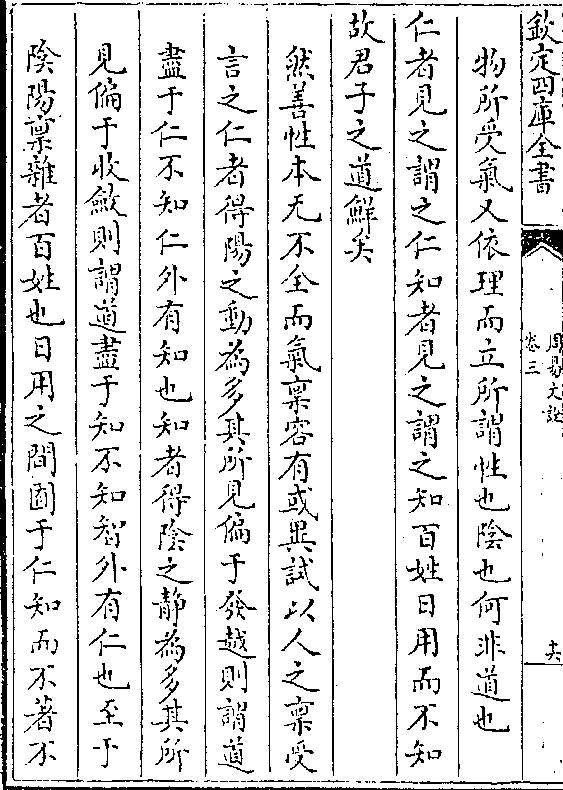 欽定四庫全書
周易文詮
卷三
十六
物所受氣又依理而立所謂性也陰也何非道也
仁者見之謂之仁知者見之謂之知百姓日用而不知
故君子之道鮮矣
然善性本无不全而氣稟容有或異試以人之稟受
言之仁者得陽之動為多其所見偏于發越則謂道
盡于仁不知仁外有知也知者得陰之靜為多其所
見偏于收斂則謂道盡于知不知智外有仁也至于
陰陽稟雜者百姓也日用之間囿于仁知而不著不